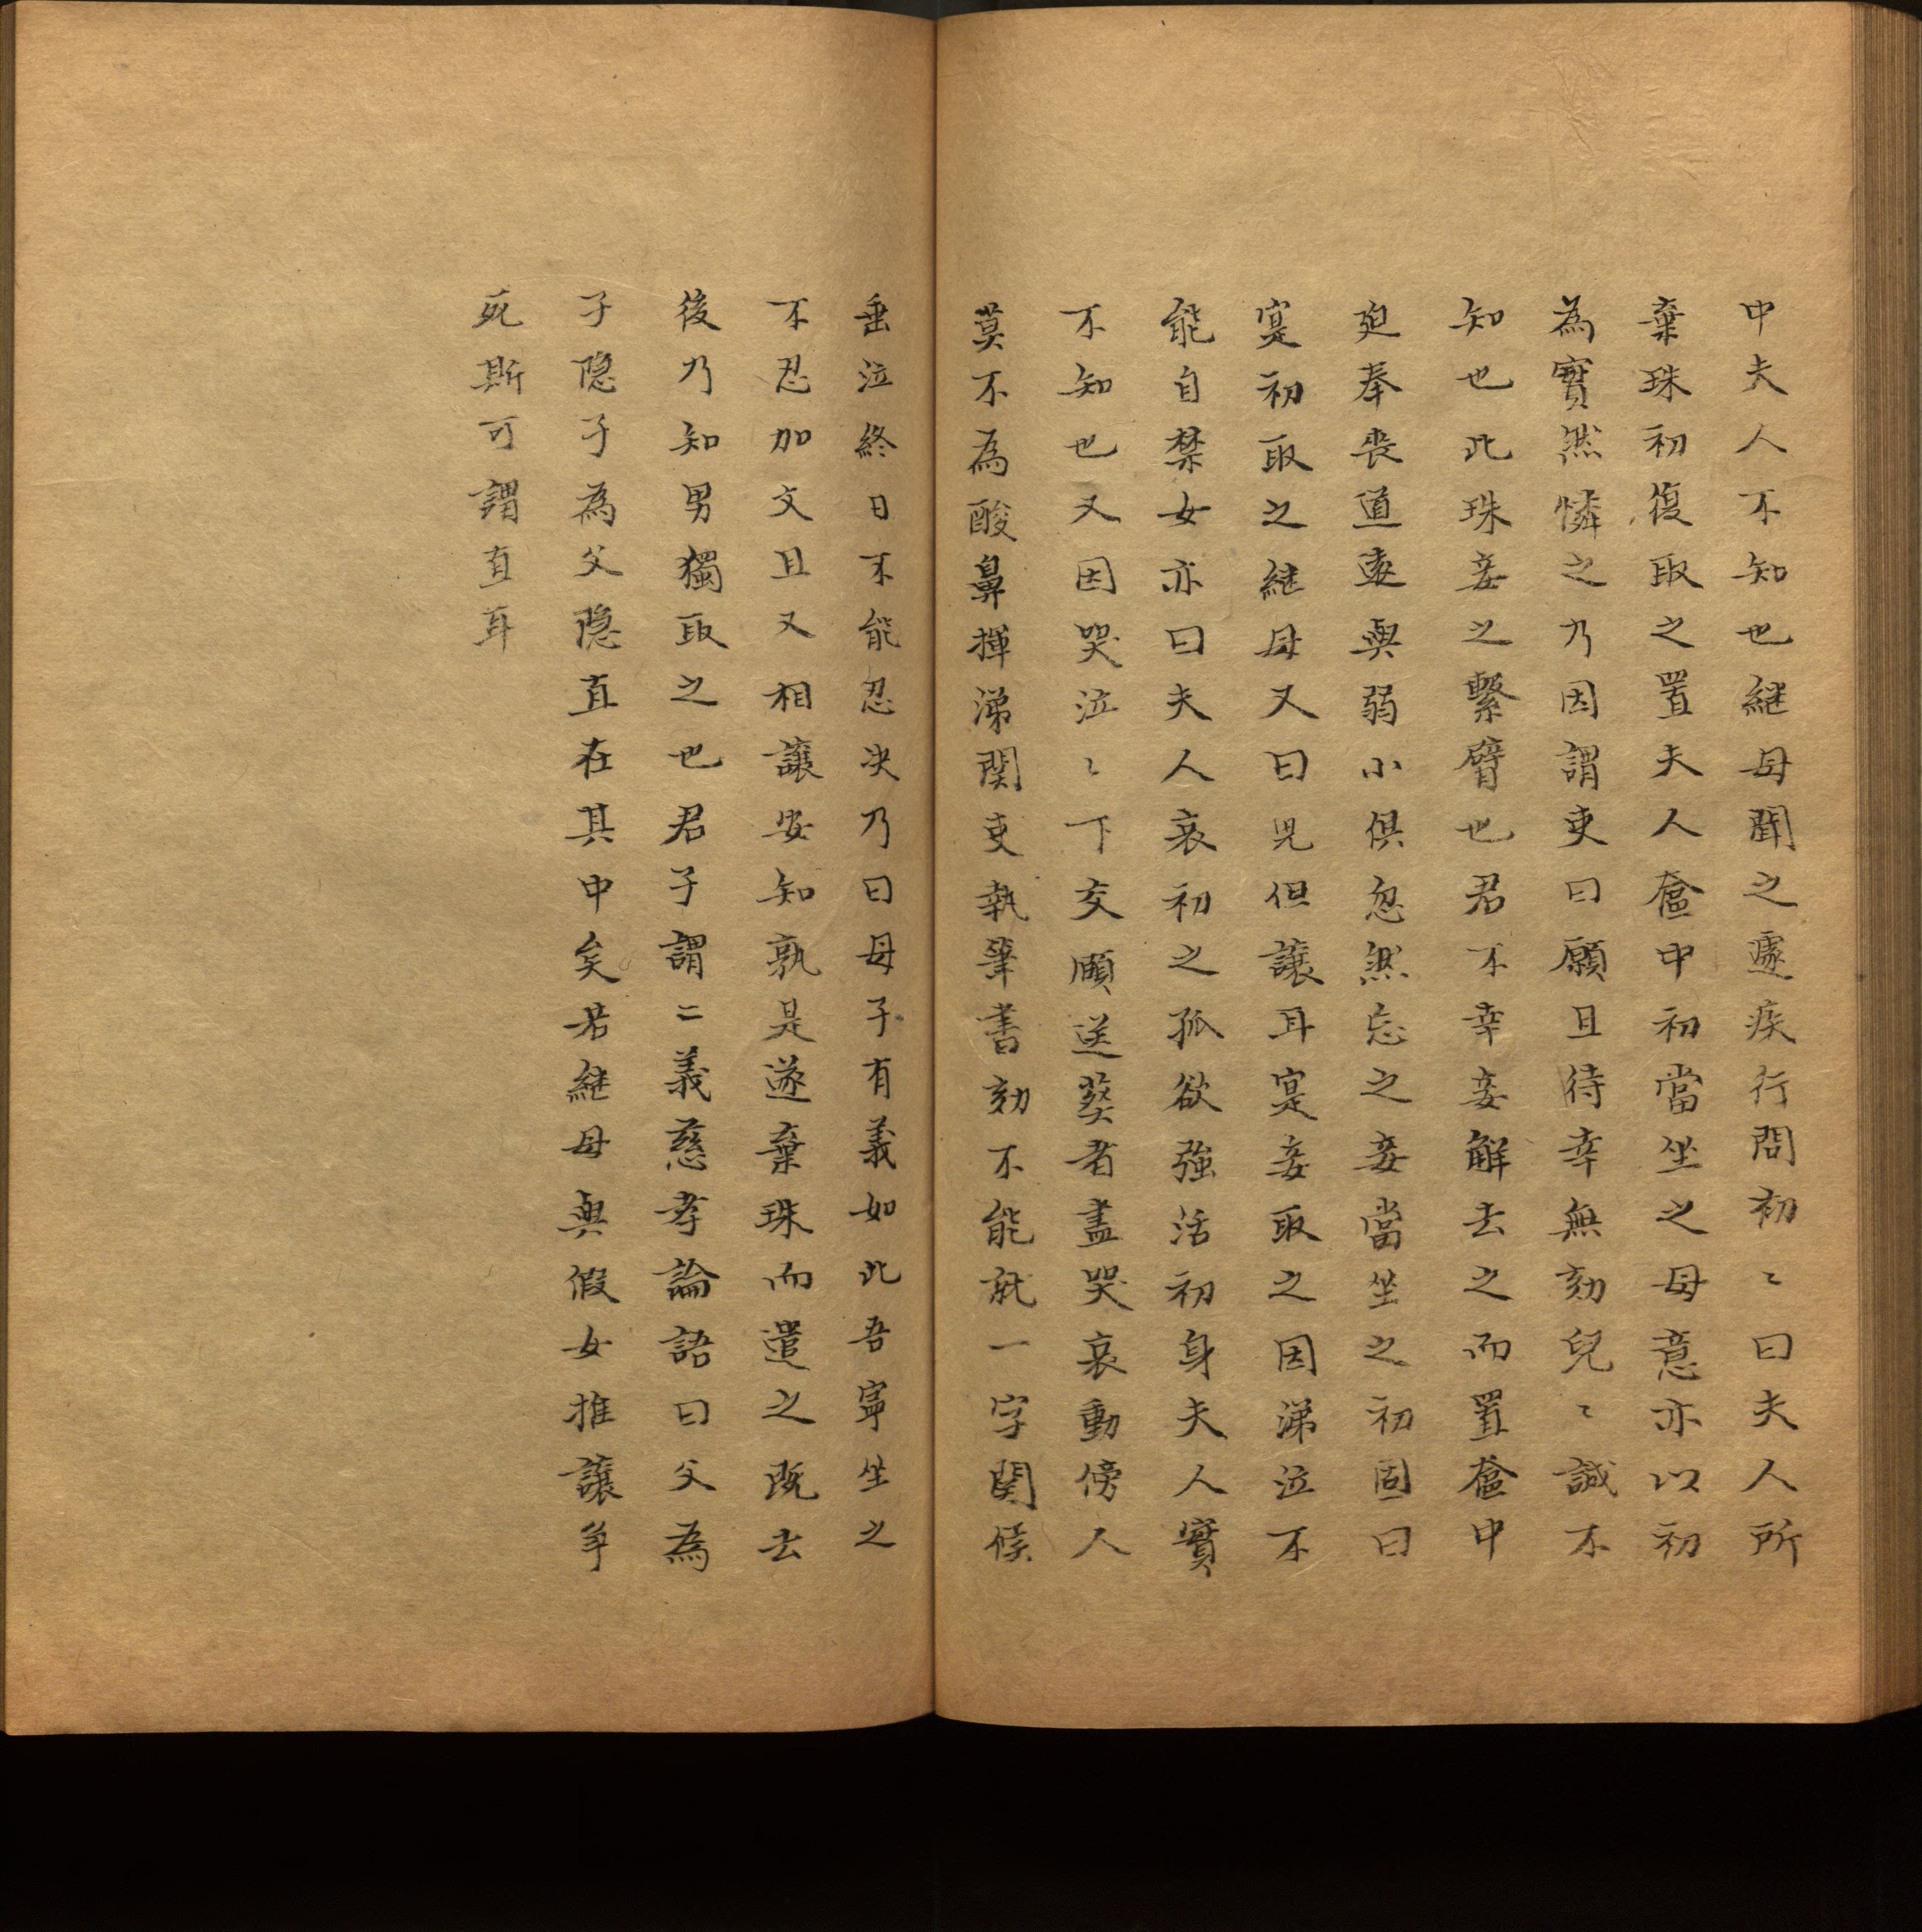 中夫人不知也継母聞之遽疾行問初〻曰夫人所
棄珠初復取之置夫人奩中初當坐之母意亦以初
為實然憐之乃因謂吏曰願且待幸無劾兒〻誠不
知也此珠妾之繫臂也君不幸妾解去之而置奩中
迎奉喪道遠與弱小俱忽然忘之妾當坐之初固曰
寔初取之継母又曰児但讓耳寔妾取之因涕泣不
能自禁女亦曰夫人哀初之孤欲強活初身夫人實
不知也又因哭泣〻下交頤送葬者盡哭哀動傍人
莫不為酸鼻揮涕関吏執筆書劾不能就一字関候
垂泣終日不能忍决乃曰母子有義如此吾寜坐之
不忍加文且又相讓安知孰是遂棄珠而遣之既去
後乃知男獨取之也君子謂二義慈孝論語曰父為
子隐子為父隐直在其中矣若継母與假女推讓争
死斯可謂直耳